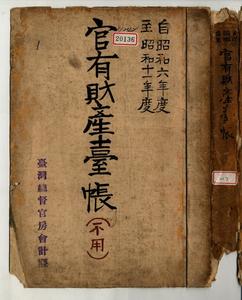 自昭和六年度
至昭和十一年度
20136
官有財產臺帳
(不用)
臺灣總督官房會計課
官有財產臺帳